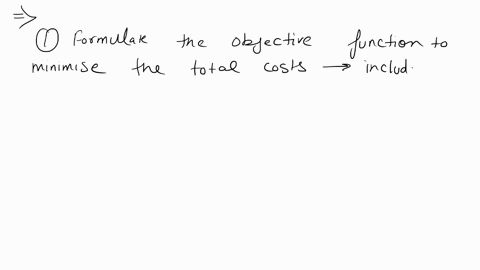 ⇒
① Formulate the objective function to
minimise the total costs → includ